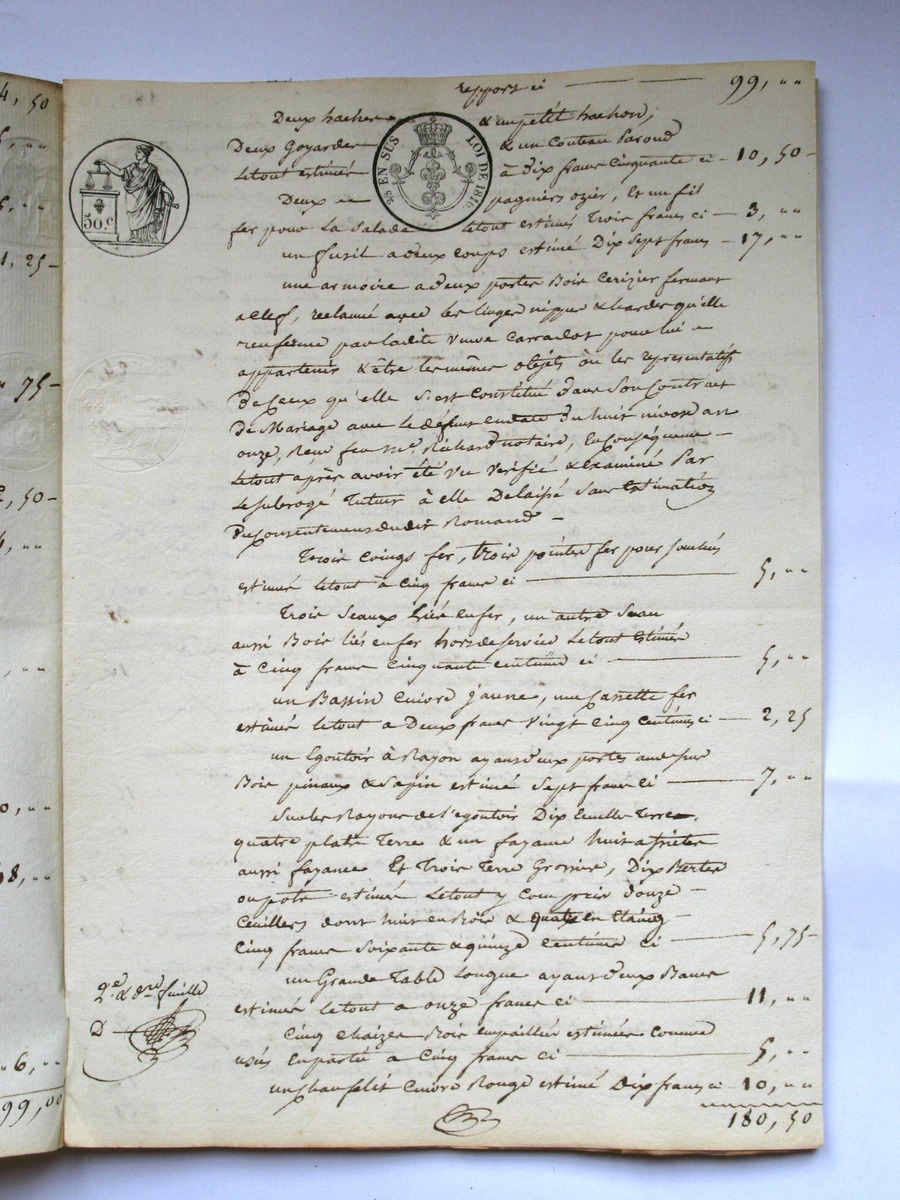 4, 50
1, 25 -
75 -
2, 50 -
0, " "
18, " "
6, " "
99, 00
50 c.
25 EN SUS LOI DE 1816.
report ci — 99, " "
Deux haches & un petit hachon,
Deux Goyardes & un Couteau Paroud
Letout estimés à Dix francs Cinquante ci - 10, 50 -
Deux pagniers ozier, & un fil
fer pour la Salade Letout estimés Trois francs ci - 3, " "
un fusil a deux coups estimé Dix Sept francs - 17, " "
une armoire a deux portes Bois Cerizier fermant
a clef, reclamé avec les linges nippes & hardes qu'elle
renferme par ladite veuve Carradot pour lui
appartenir & être les mêmes objets ou les representatifs
De Ceux qu'elle S'est Constitué Dans Son Contrat
De Mariage avec le défunt en date Du huit nivose an
onze, Reçu feu Me. Richard notaire, En Conséquence
Letout après avoir été Vu Verifié & Examiné Par
Le subrogé Tuteur à elle Delaissé Sans Estimation
Du Consentement dudit Romand -
Trois Coings fer, trois pointes fer pour
estimés letout à Cinq francs ci — 5, " "
Trois Seaux Liés en fer, un autre Seau
aussi Bois liés en fer hors de service Letout Estimés
à Cinq francs Cinquante centimes ci — 5, " "
un Bassin Cuivre jaune, une Cassette fer
estimés letout a Deux francs Vingt Cinq Centimes ci - 2, 25
un Egoutoir à Rayon ayant deux portes
Bois pinaux & Sapin estimé Sept francs ci — 7, " "
Sur les Rayons de l'egoutoir Dix Terre,
quatre plats Terre & un fayance huit assiettes
aussi fayance Et Trois Terre Grossière, Dix Bertes
ou pots estimés Letout y Compris Douze
Ceuillers dont huit en Bois & quatre en Etaing -
Cinq francs Soixante & quinze Centimes ci — 5, 75 -
un Grande Table Longue ayant deux Bancs
estimés letout a onze francs ci — 11, " "
Cinq Chaizes Bois empaillés estimées Comme
usés En partie a Cinq francs ci — 5, " "
un Chaufelit Cuivre Rouge estimé Dix francs ci - 10, " "
180, 50
2e. & dre. feuille
D